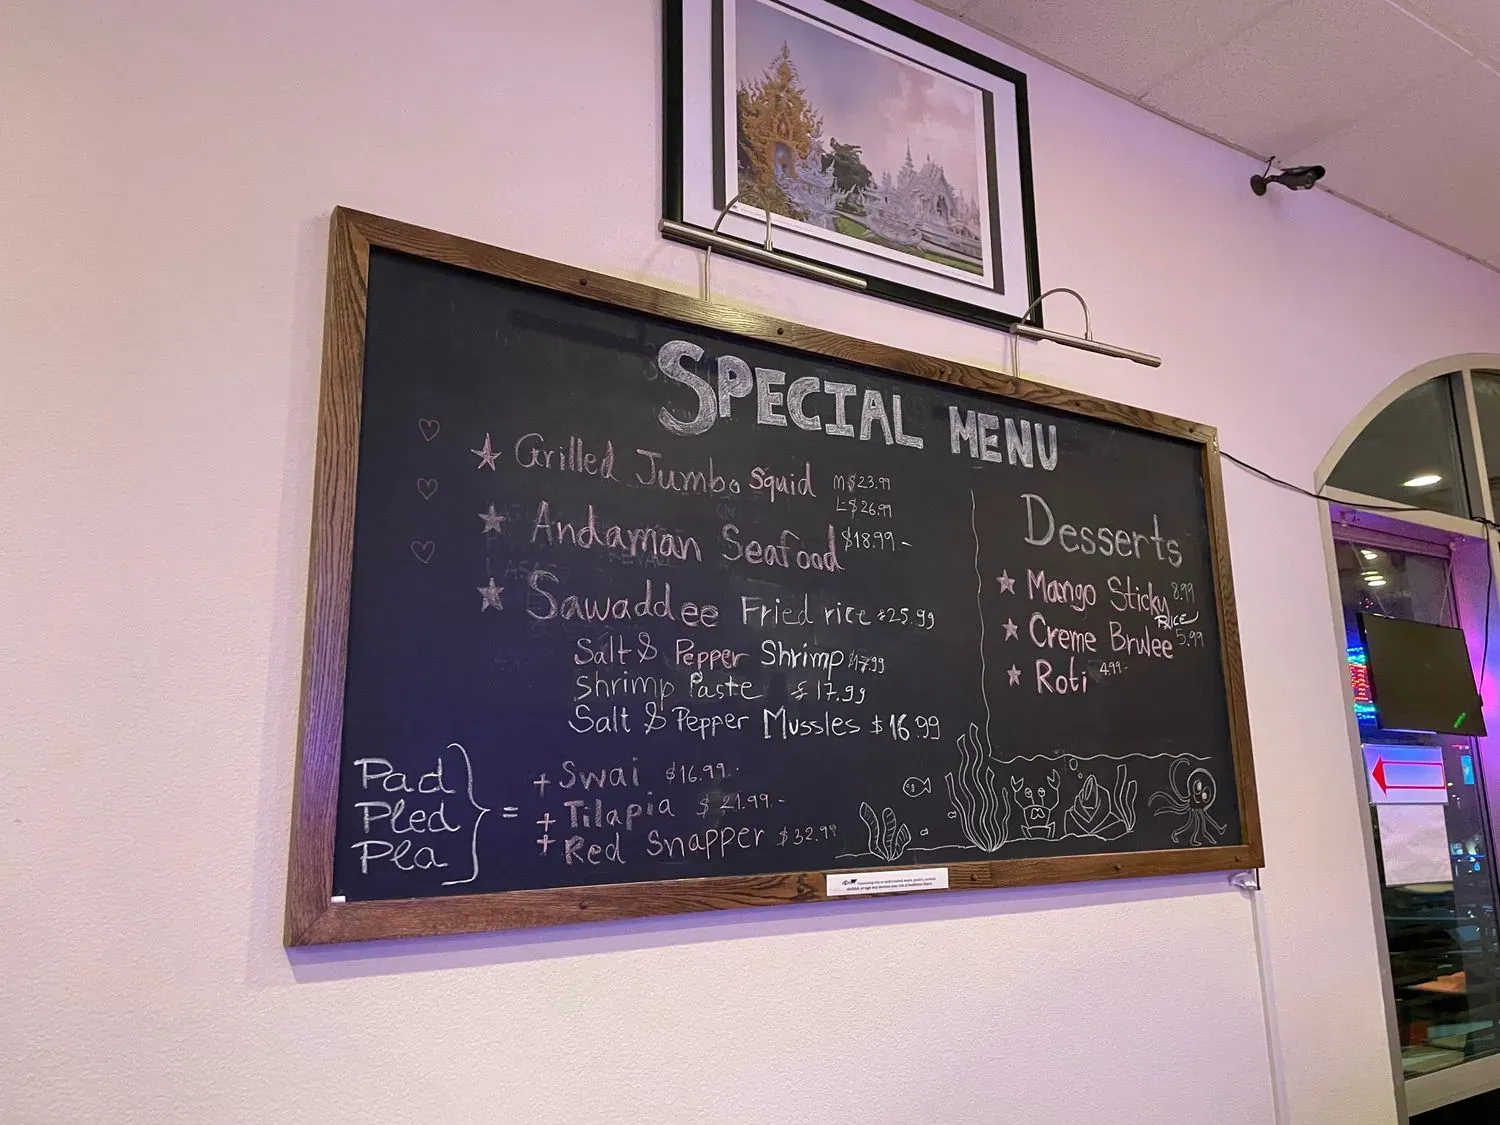 SPECIAL MENU
Grilled Jumbo Squid M $23.99
L $26.99
Andaman Seafood $18.99-
Sawaddee Fried rice $25.99
Salt & Pepper Shrimp $17.99
Shrimp Paste $17.99
Salt & Pepper Mussles $16.99
Pad
Pled
Pla
=
+ Swai $16.99.-
+ Tilapia $21.99.-
+ Red Snapper $32.99
Desserts
Mango Sticky RICE 8.99
Creme Brulee 5.99
Roti 4.99-